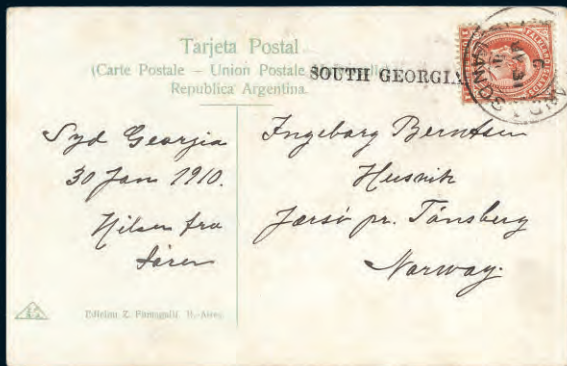 Tarjeta Postal
(Carte Postale – Union Postale
Republica Argentina.
SOUTH GEORGIA
Syd Georgia
30 Jan 1910.
Hilsen fra
Søren
Ingeborg Berntsen
Husvik
Jarsø pr. Tønsberg
Norway.
Edicion Z. Fumagalli. B.-Aires.